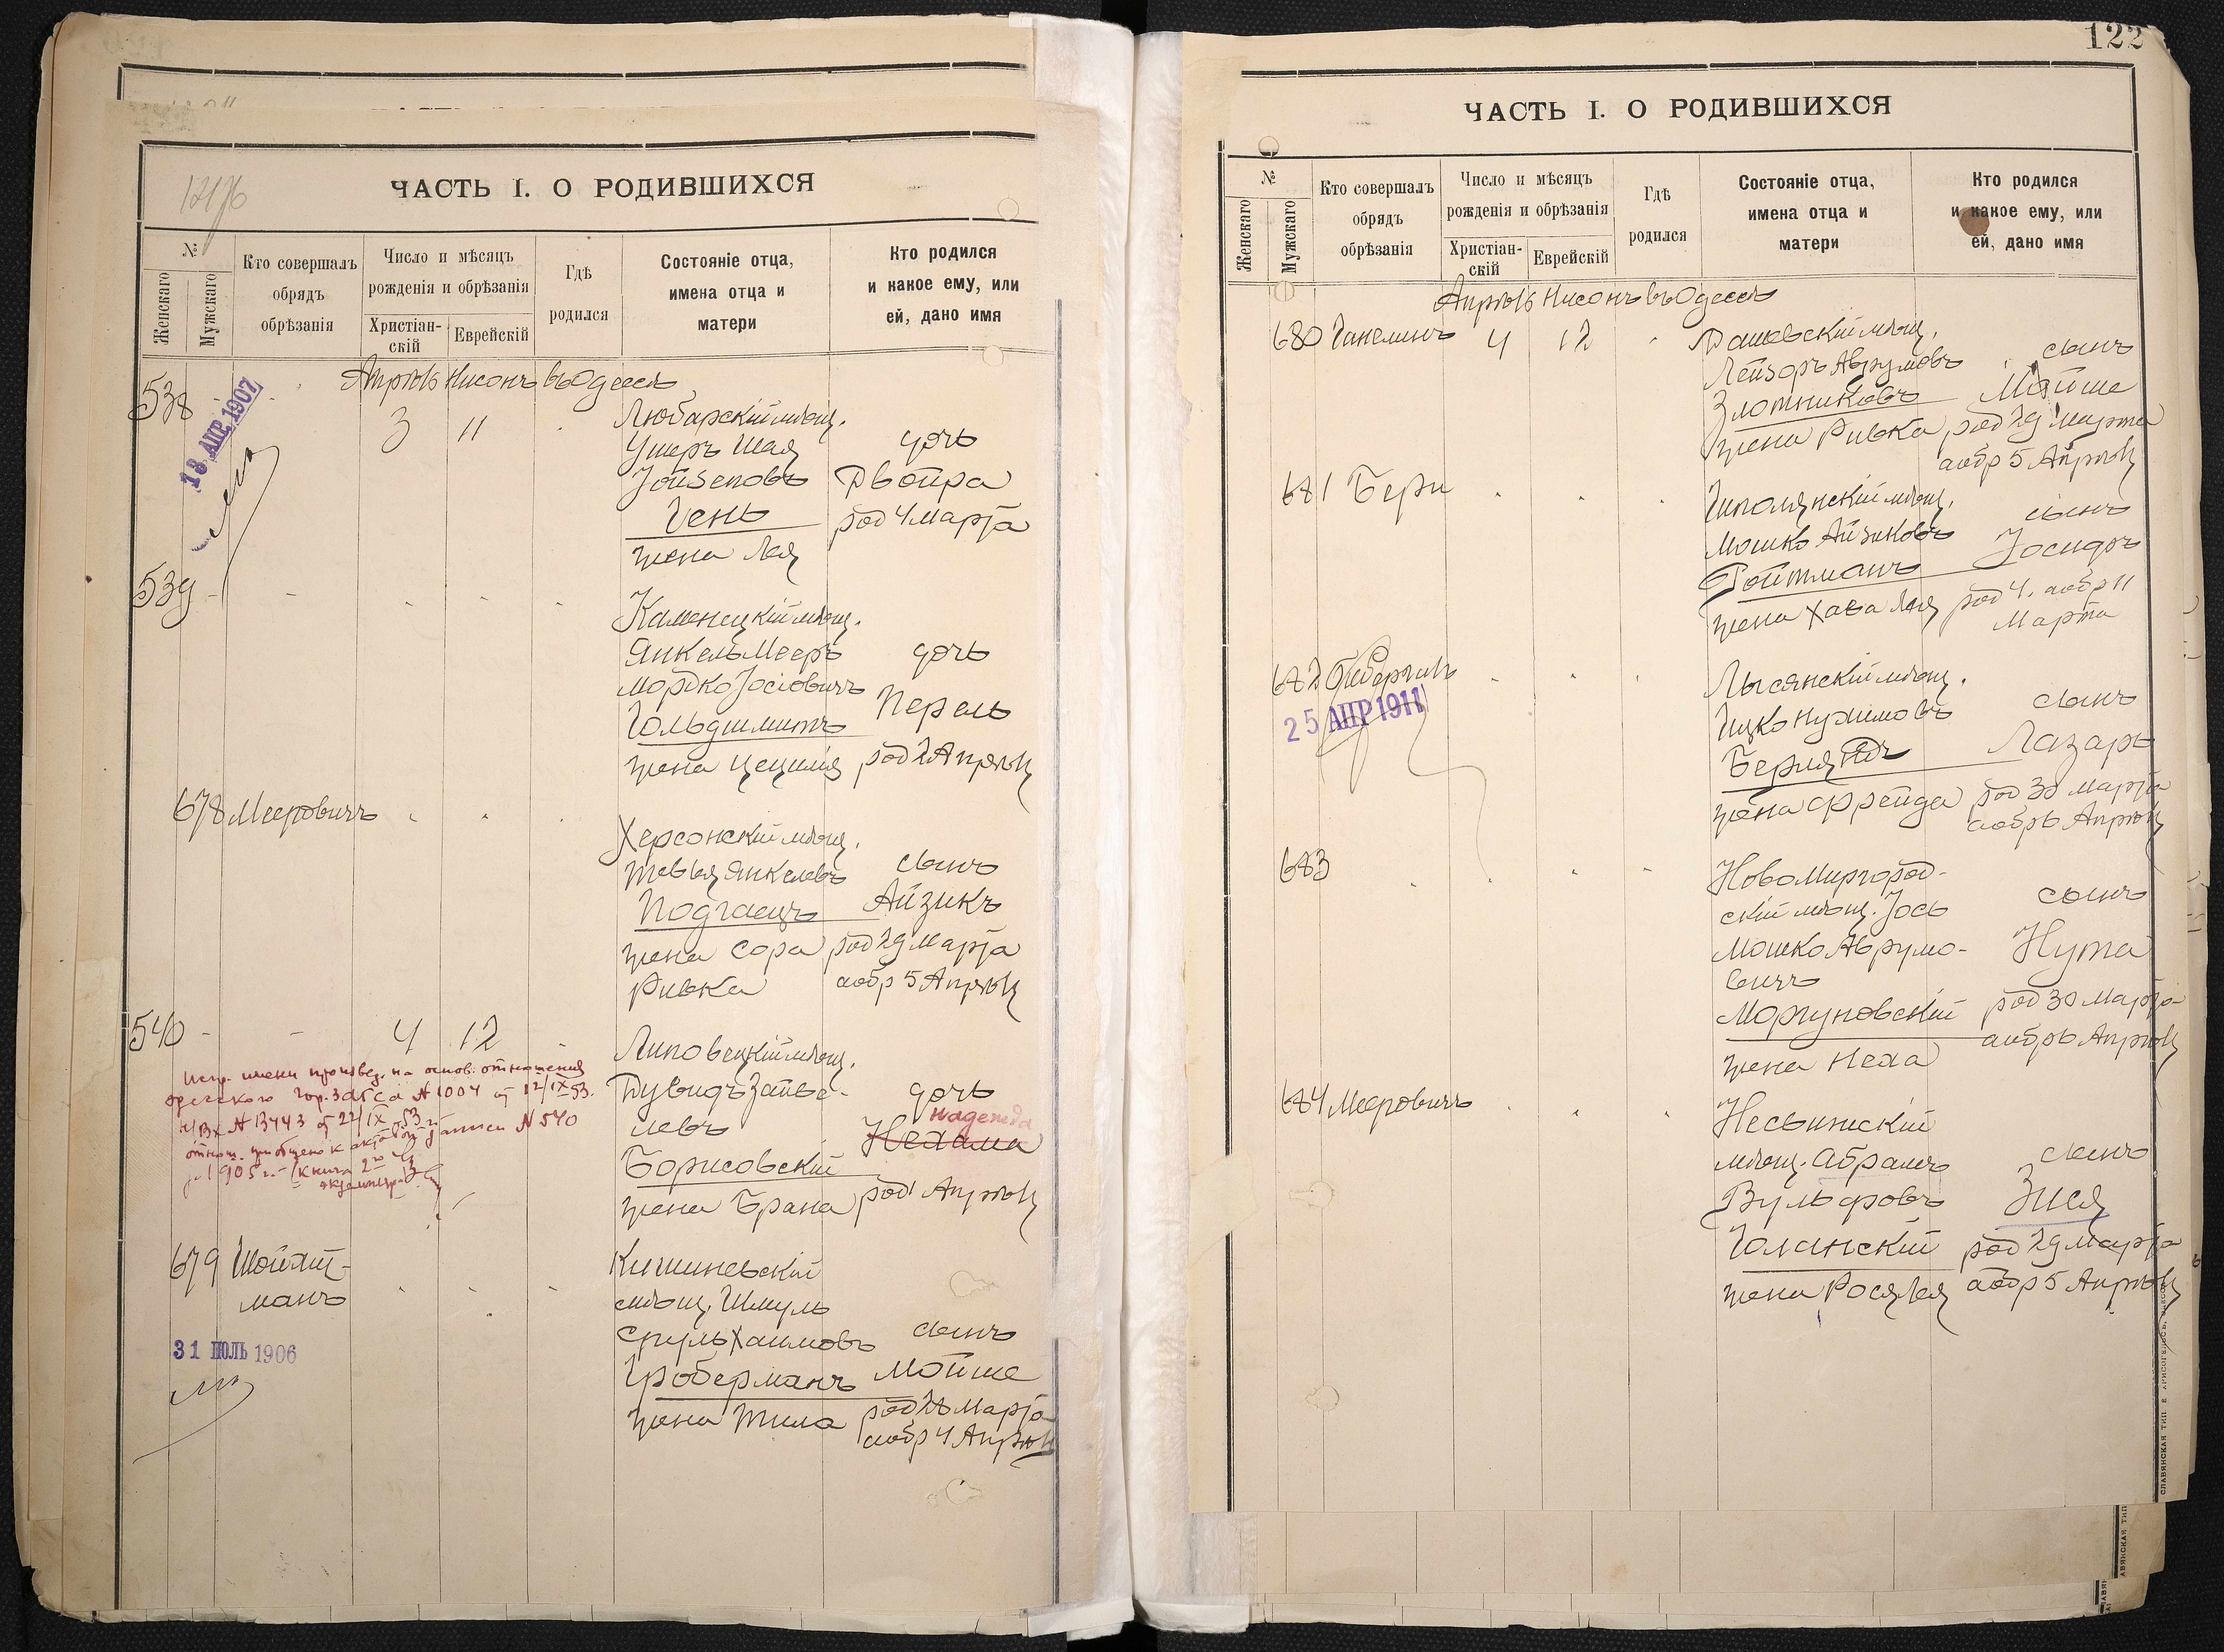 ЧАСТЬ I. О РОДИВШИХСЯ
№
Женскаго
Мужскаго
Кто совершалъ
обрядъ
обрѣзанія
Число и мѣсяцъ
рожденія и обрѣзанія
Христіан-
скій
Еврейскій
Гдѣ
родился
Состояніе отца,
имена отца и
матери
Кто родился
и какое ему, или
ей, дано имя
Апрѣль Нисонъ въ Одессѣ
538
18 АПР. 1907
3 11
Любарскій мѣщ.
Ушеръ Шая
Іойseповъ
Гень
жена Лея
дочь
Двойра
род 4 Марта
539
Каменецкій мѣщ.
Янкель Мееръ
Мордко Іосіовичъ
Гольдшмитъ
жена Цецилія
дочь
Перель
род 2 Апрѣля
678 Мееровичъ
Херсонскій мѣщ.
Тевья Янкелевъ
Подгаецъ
жена Сора
Ривка
сынъ
Айзикъ
род 29 Марта
аобр 5 Апрѣля
540
4 12
Испр. имени произвед. на основ. отношения
одесского Гор. Загса № 1004 от 12/IX 53.
Вх № 13443 от 22/IX-53 г.
отнош. приобщено к актовой записи № 540
за 1905 г. (книга 2-ой
экземпляр)
Липовецкій мѣщ.
Дувидъ Зайве-
левъ
Борисовскій
жена Брана
дочь
Надежда
Нехама
род 1 Апрѣля
679 Шойхит-
манъ
31 ІЮЛЬ 1906
Кишиневскій
мѣщ. Шмуль
Сруль Хаимовъ
Гроберманъ
жена Тила
сынъ
Мойше
род 28 Марта
аобр 4 Апрѣля
122
ЧАСТЬ I. О РОДИВШИХСЯ
№
Женскаго
Мужскаго
Кто совершалъ
обрядъ
обрѣзанія
Число и мѣсяцъ
рожденія и обрѣзанія
Христіан-
скій
Еврейскій
Гдѣ
родился
Состояніе отца,
имена отца и
матери
Кто родился
и какое ему, или
ей, дано имя
Апрѣль Нисонъ въ Одессѣ
680 Ганелинъ 4 12
Дашевскій мѣщ.
Лейзоръ Аврумовъ
Злотниковъ
жена Ривка
сынъ
Мойше
род 29 Марта
аобр 5 Апрѣля
681 Бери
Шполянскій мѣщ.
Мошко Айзиковъ
Ройтманъ
жена Хава Лея
сынъ
Іосифъ
род 4. аобр 11
Марта
682
25 АПР 1911
Лысянскій мѣщ.
Ицко Нухимовъ
Берляндъ
жена Фрейда
сынъ
Лазарь
род 30 Марта
аобр 6 Апрѣля
683
Новомиргород-
скій мѣщ. Іось
Мошко Аврумо-
вичъ
Моргуновскій
жена Неха
сынъ
Нута
род 30 Марта
аобр 6 Апрѣля
684 Мееровичъ
Несвижскій
мѣщ. Абрамъ
Вульфовъ
Голанскій
жена Рося Лея
сынъ
Зися
род 29 Марта
аобр 5 Апрѣля